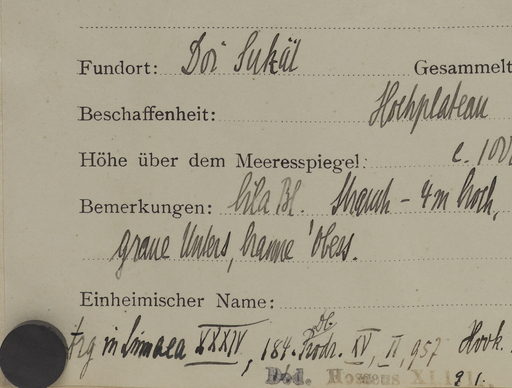 Fundort: Doi Sutäl Gesammelt
Beschaffenheit: Hochplateau
Höhe über dem Meeresspiegel: c. 100
Bemerkungen: lila Bl. Strauch - 4 m hoch,
graue Unters, braune Obers.
Einheimischer Name:
in Linnaea XXXIV, 184. DC Prodr. XV, II, 957 Hook.
Ded. Hosseus XI.